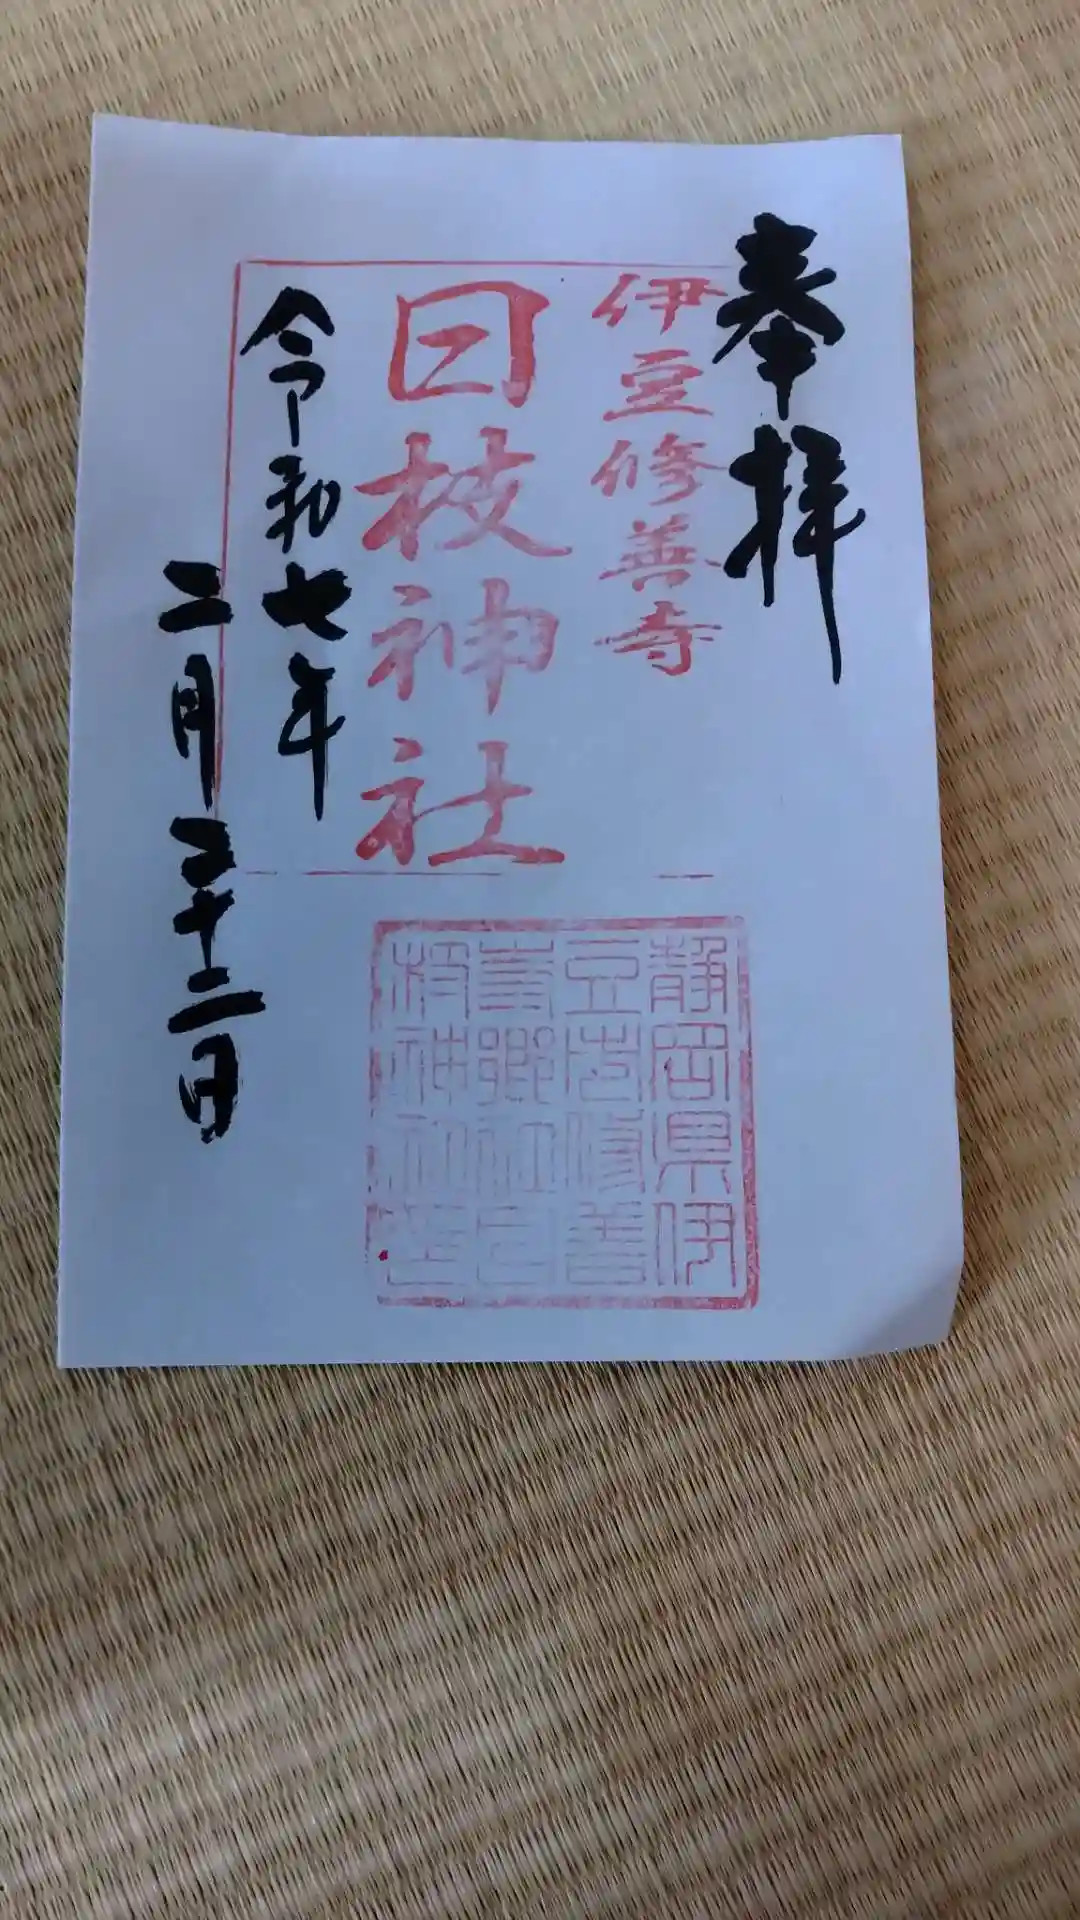 奉拝
伊豆修善寺
日枝神社
令和七年
二月二十二日
静岡県伊
豆市修善
寺郷社日
枝神社